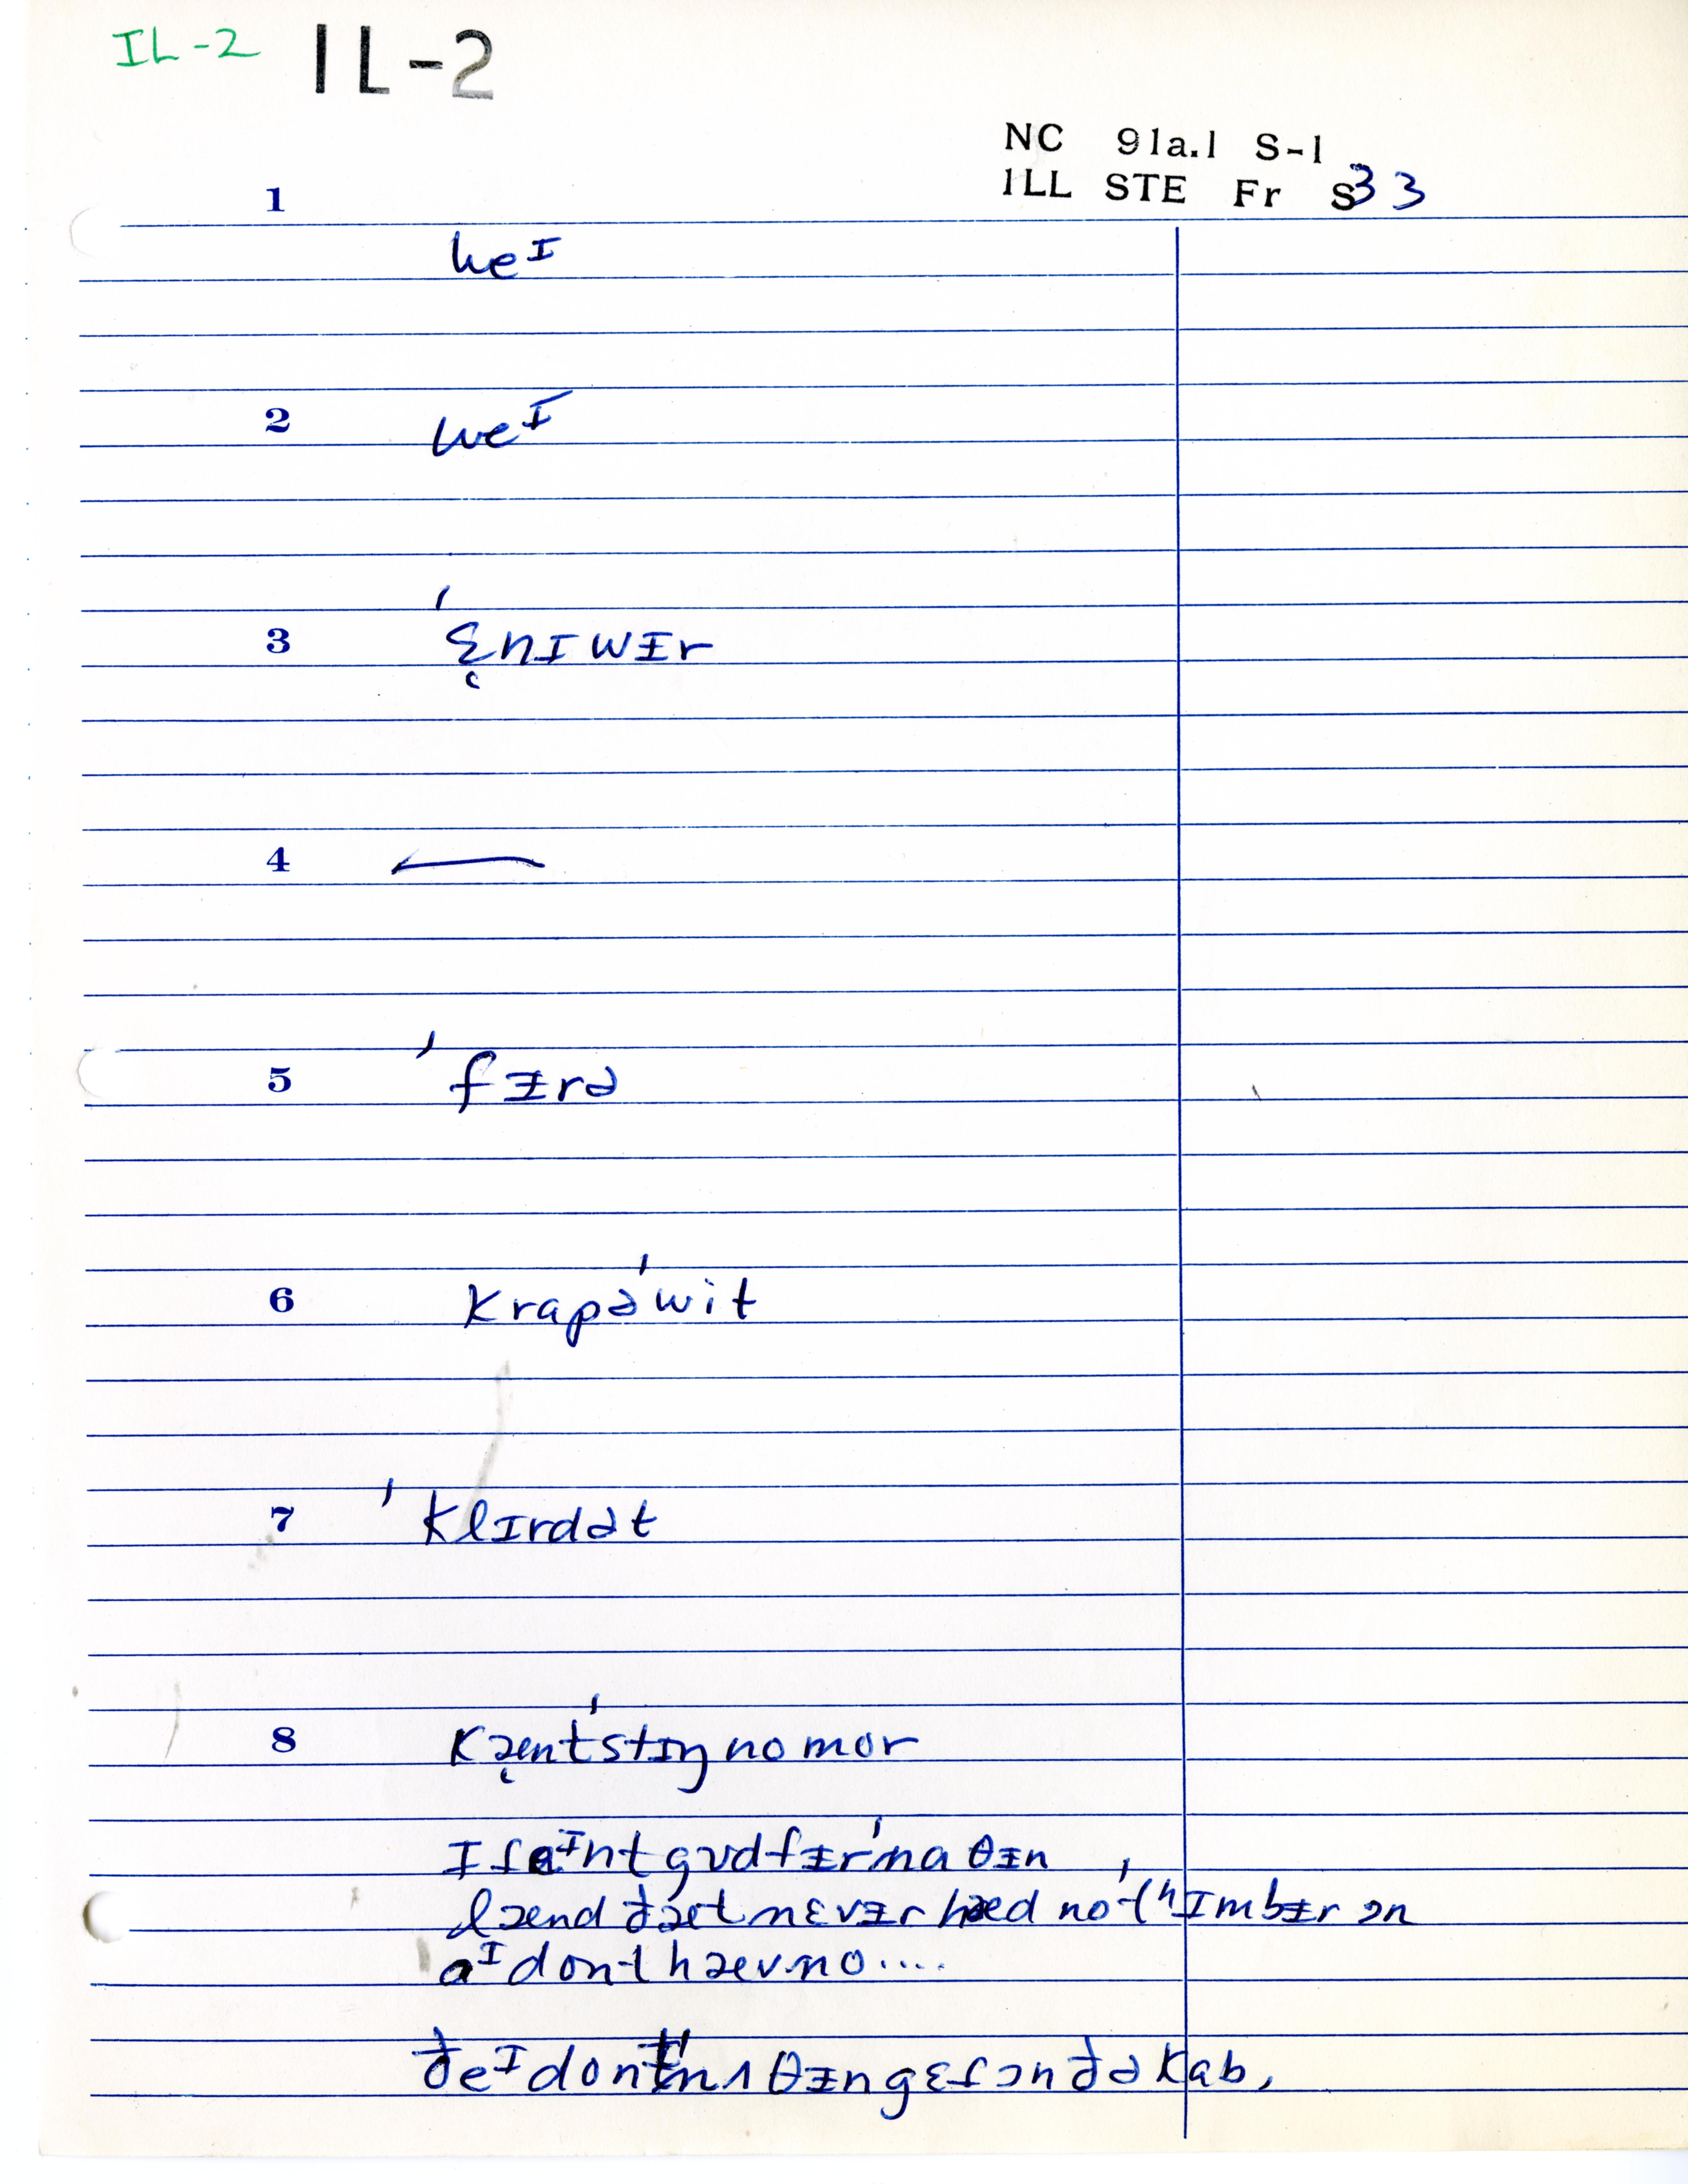 IL-2 IL-2
NC 91a.1 S-1
ILL STE Fr S33
1
weᴵ
2
weᴵ
3 ˈɛ̜nɪwᵻr
4
5 ˈfᵻrə
6 krapəˈwit
7 ˈklɪrdət
8 kæ̜ntˈstɪŋ no mor
ɪʃ eᴵnt gʊd fᵻrˈnaθᵻn
lænd ðæt nɛvᵻr hæd noˈtʰɪmbᵻr ɔn
aᴵ dont hæv no....
ðeᴵ dontˈnʌθᵻn gɛʃ ɔn ðə kab,